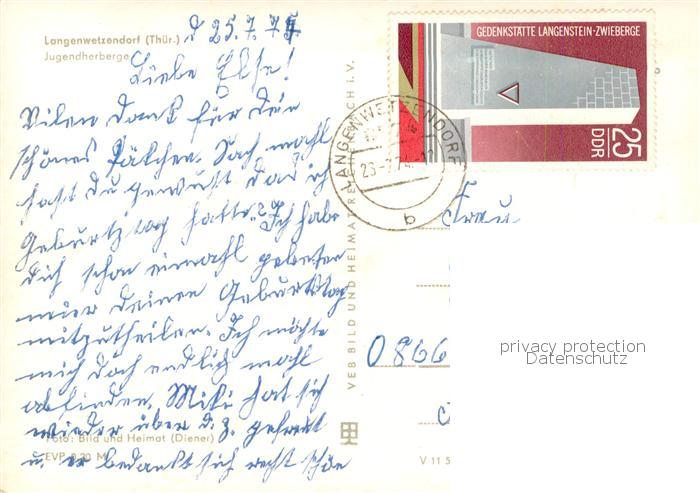 Langenwetzendorf (Thür.)
Jugendherberge
d 25.7.75
Liebe Else!
Vilen Dank für dein
schönes Päkchen. Sach mahl
hast du gewust das ich
Geburtztag hatte? Ich habe
dich schon einmahl gebeten
mier deinen Geburtstag
mitzutheilen. Ich möchte
mich doch endlich mahl
abfinden. Miki hat sich
wieder über d. z. gefreut
u. er bedankt sich recht schön
Foto: Bild und Heimat (Diener)
EVP 0,20 M
VEB BILD UND HEIMAT REICHENBACH I. V.
V 11 5
GEDENKSTÄTTE LANGENSTEIN-ZWIEBERGE
25
DDR
LANGENWETZENDORF
b
Frau
0866
privacy protection
Datenschutz